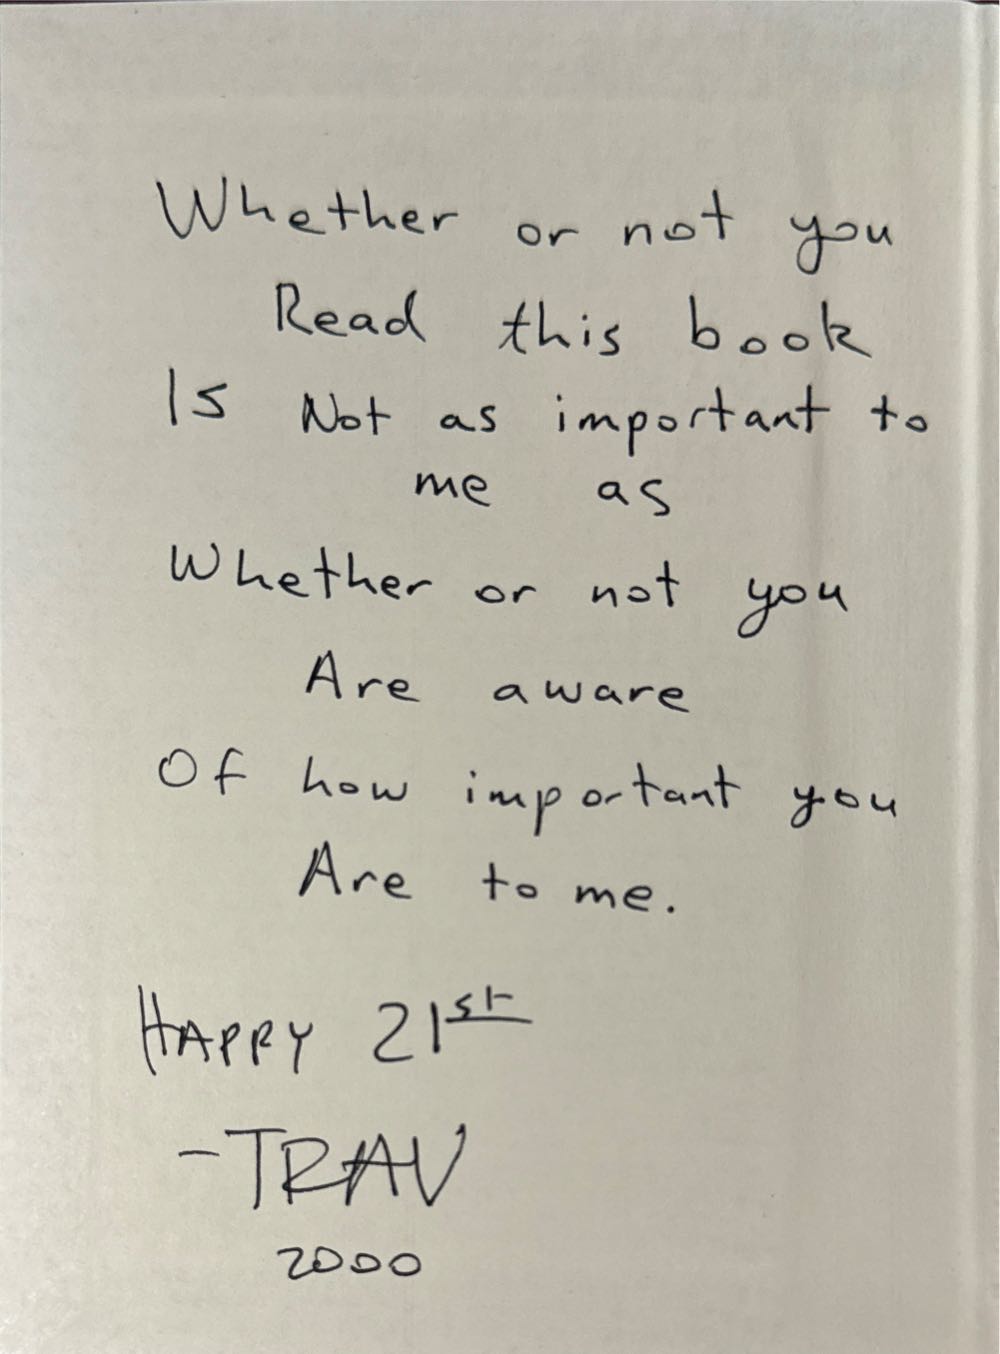 Whether or not you
Read this book
Is Not as important to
me as
Whether or not you
Are aware
Of how important you
Are to me.
HAPPY 21st
-TRAV
2000